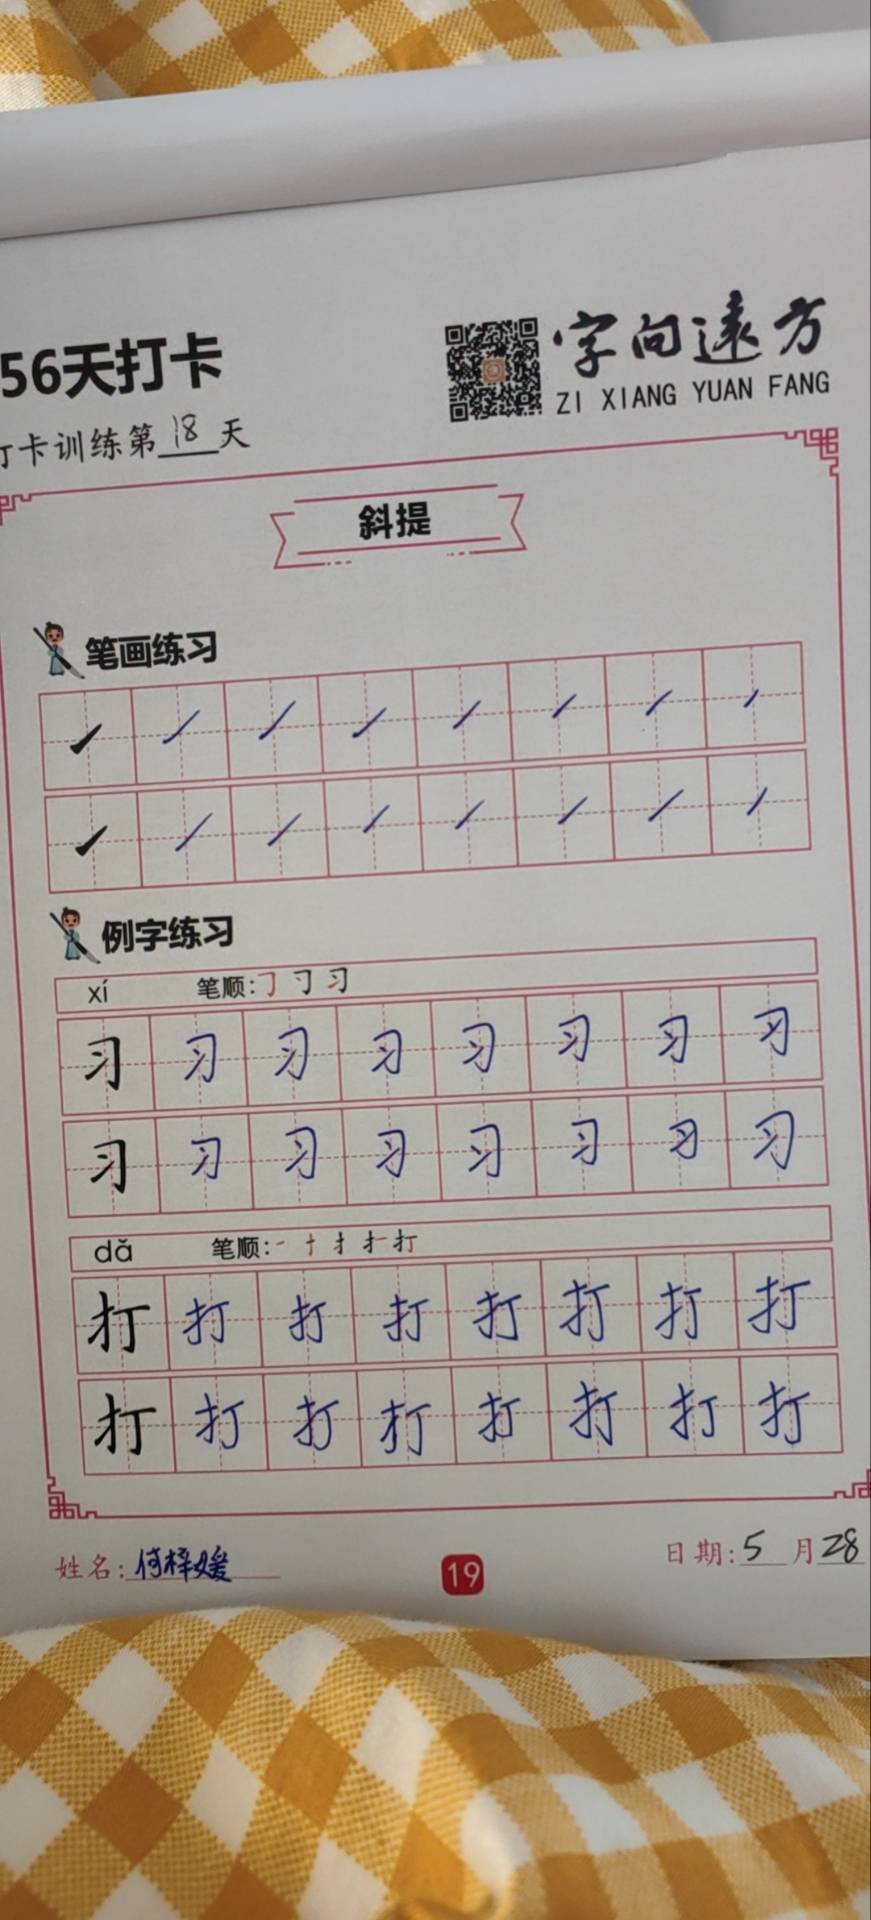 56天打卡
字向遠方
ZI XIANG YUAN FANG
打卡训练第18天
斜提
笔画练习
例字练习
xí 笔顺:㇆ 习
习 习 习 习 习 习 习 习
习 习 习 习 习 习 习 习
dǎ 笔顺:一 十 扌 打
打 打 打 打 打 打 打 打
打 打 打 打 打 打 打 打
姓名:何梓媛
19
日期:5月28